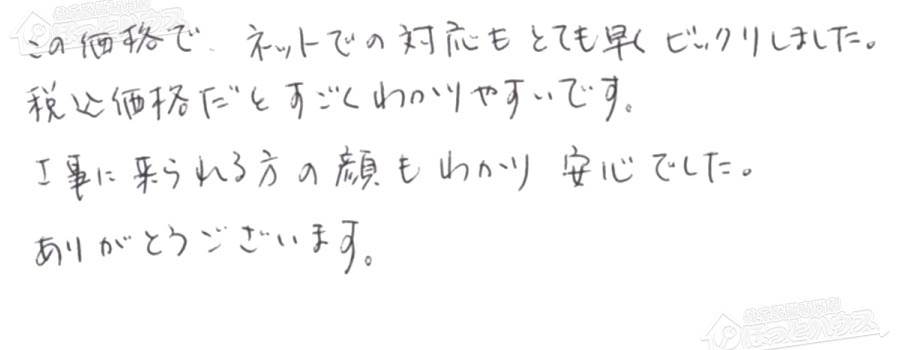 この価格で、ネットでの対応もとても早くビックリしました。
税込価格だとすごくわかりやすいです。
工事に来られる方の顔もわかり安心でした。
ありがとうございます。
ほっとハウス